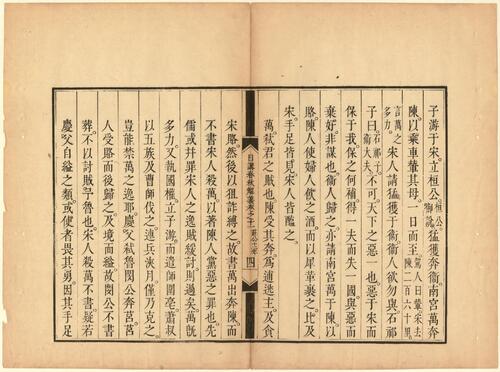 子游于宋立桓公桓公御說猛獲奔衛南宮萬奔
陳以乘車輦其母一日而至駕人曰輦宋去陳二百六十里
言萬之多力宋人請猛獲于衛衛人欲勿與石祁
子曰石祁子衛大夫不可天下之惡一也惡于宋而
保于我保之何補得一夫而失一國與惡而
棄好非謀也衛人歸之亦請南宮萬于陳以
賂陳人使婦人飲之酒而以犀革裹之比及
宋手足皆見宋人皆醢之
日講春秋解義卷之十 莊公 四
萬弑君之賊也陳受其奔為逋逃主及貪
宋賂然後以狙詐縛之故書萬出奔陳而
不書宋人殺萬以著陳人黨惡之罪也先
儒或幷罪宋人之逸賊緩討則過矣萬旣
多力又執國權立子游而遣師圍亳蕭叔
以五族及曹師伐之連兵浹月僅乃克之
豈能禁萬之逸耶慶父弑魯閔公奔莒莒
人受賂而後歸之及境而縊故閔公不書
葬不以討賊予魯也宋人殺萬不書疑若
慶父自縊之類或使者畏其勇因其手足